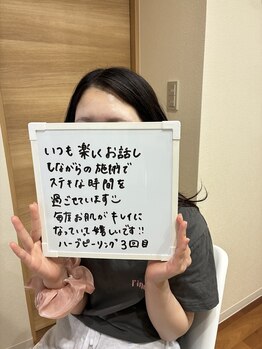 いつも楽しくお話し
しながらの施術で
ステキな時間を
過ごせています
毎度お肌がキレイに
なっていて嬉しいです!!
ハーブピーリング3回目